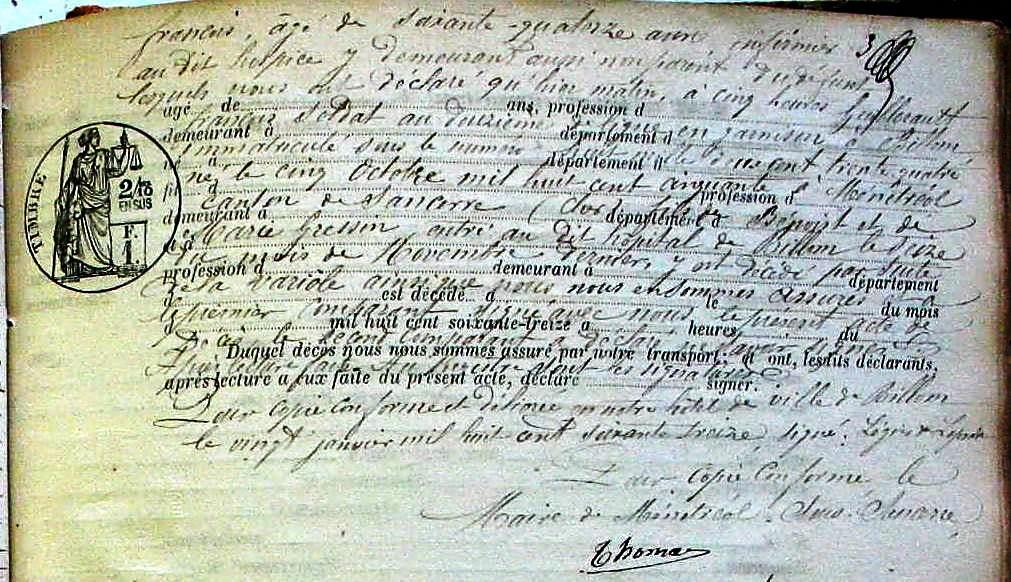 français, âgé de soixante-quatorze ans infirmier
au dit hospice y demeurant aussi non parent du défunt
lesquels nous ont déclaré qu'hier matin, à cinq heures Guillerault
âgé de ans, profession d
François soldat au deuxième en garnison à Billom
demeurant à département d
immatriculé sous le numéro trente quatre
département d
né le cinq Octobre mil huit cent cinquante à Ménétréol
profession d
Canton de Sancerre Benoist et de
demeurant à département d
Marie Gressin entré au dit hôpital de Billom le seize
et d
du mois de Novembre dernier, y est décédé par suite
profession d demeurant à département
de la variole ainsi que nous nous en sommes assurés
d est décédé à le du mois
le premier comparant signé avec nous le présent acte de
d mil huit cent soixante-treize à heures du
décès le second comparant a déclaré ne savoir signer
Duquel décès nous nous sommes assuré par notre transport; et ont, lesdits déclarants,
après lecture à eux faite du présent acte, déclaré signer.
Pour copie conforme et délivrée en notre hôtel de ville de Billom
le vingt janvier mil huit cent soixante treize, signé.
Pour copie conforme le
Maire de Ménétréol-Sous-Sancerre
Thomas
TIMBRE
2/10
EN SUS
F.
1.